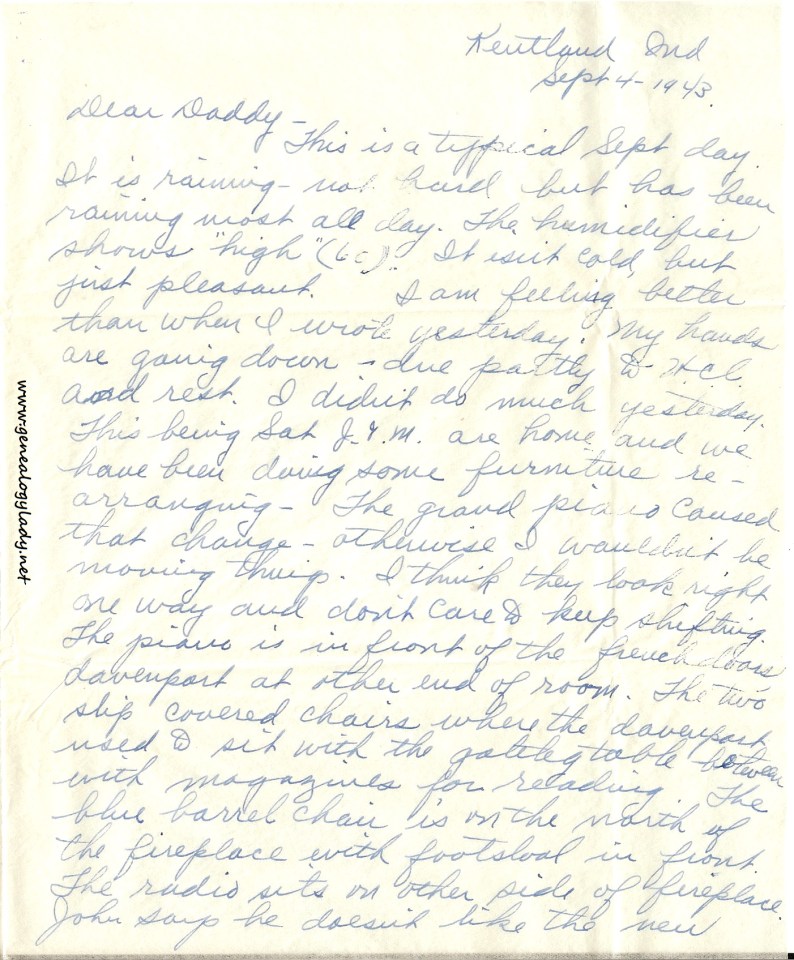 Kentland Ind
Sept 4-1943.
Dear Daddy-
This is a typical Sept day.
It is raining- not hard but has been
raining most all day. The humidifier
shows "high" (60). It isn't cold, but
just pleasant. I am feeling better
than when I wrote yesterday. My hands
are going down - due partly to H.C.l.
and rest. I didn't do much yesterday.
This being Sat J.&M. are home and we
have been doing some furniture re-
arranging- The grand piano caused
that change- otherwise I wouldn't be
moving things. I think they look right
one way and don't care to keep shifting.
The piano is in front of the french doors
davenport at other end of room. The two
slip covered chairs where the davenport
used to sit with the gateleg table between
with magazines for reading. The
blue barrel chair is on the north of
the fireplace with footstool in front.
The radio sits on other side of fireplace.
John says he doesn't like the new
www.genealogylady.net